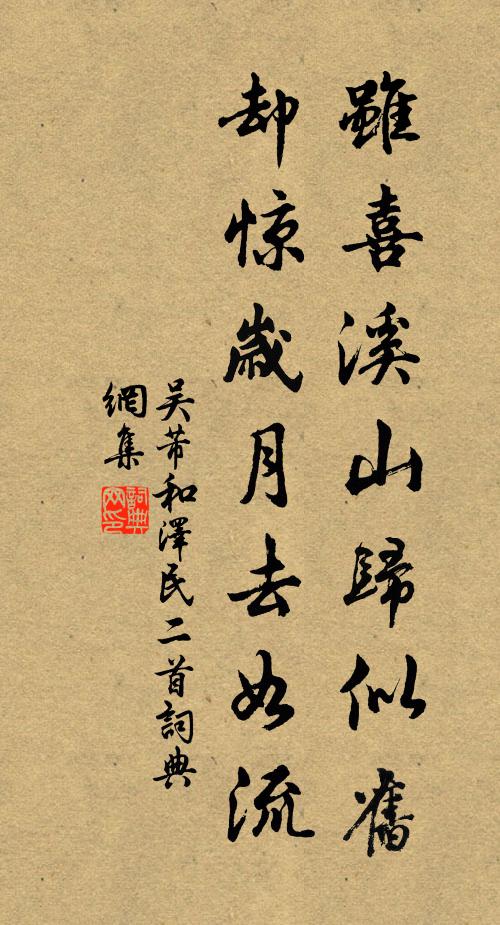 雖喜溪山歸似舊
却惊歲月去如流
吴芾和澤民二首詞典
網集
詞典
网印